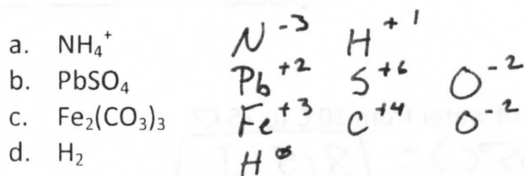 a. NH₄⁺ N⁻³ H⁺¹
b. PbSO₄ Pb⁺² S⁺⁶ O⁻²
c. Fe₂(CO₃)₃ Fe⁺³ C⁺⁴ O⁻²
d. H₂ H⁰